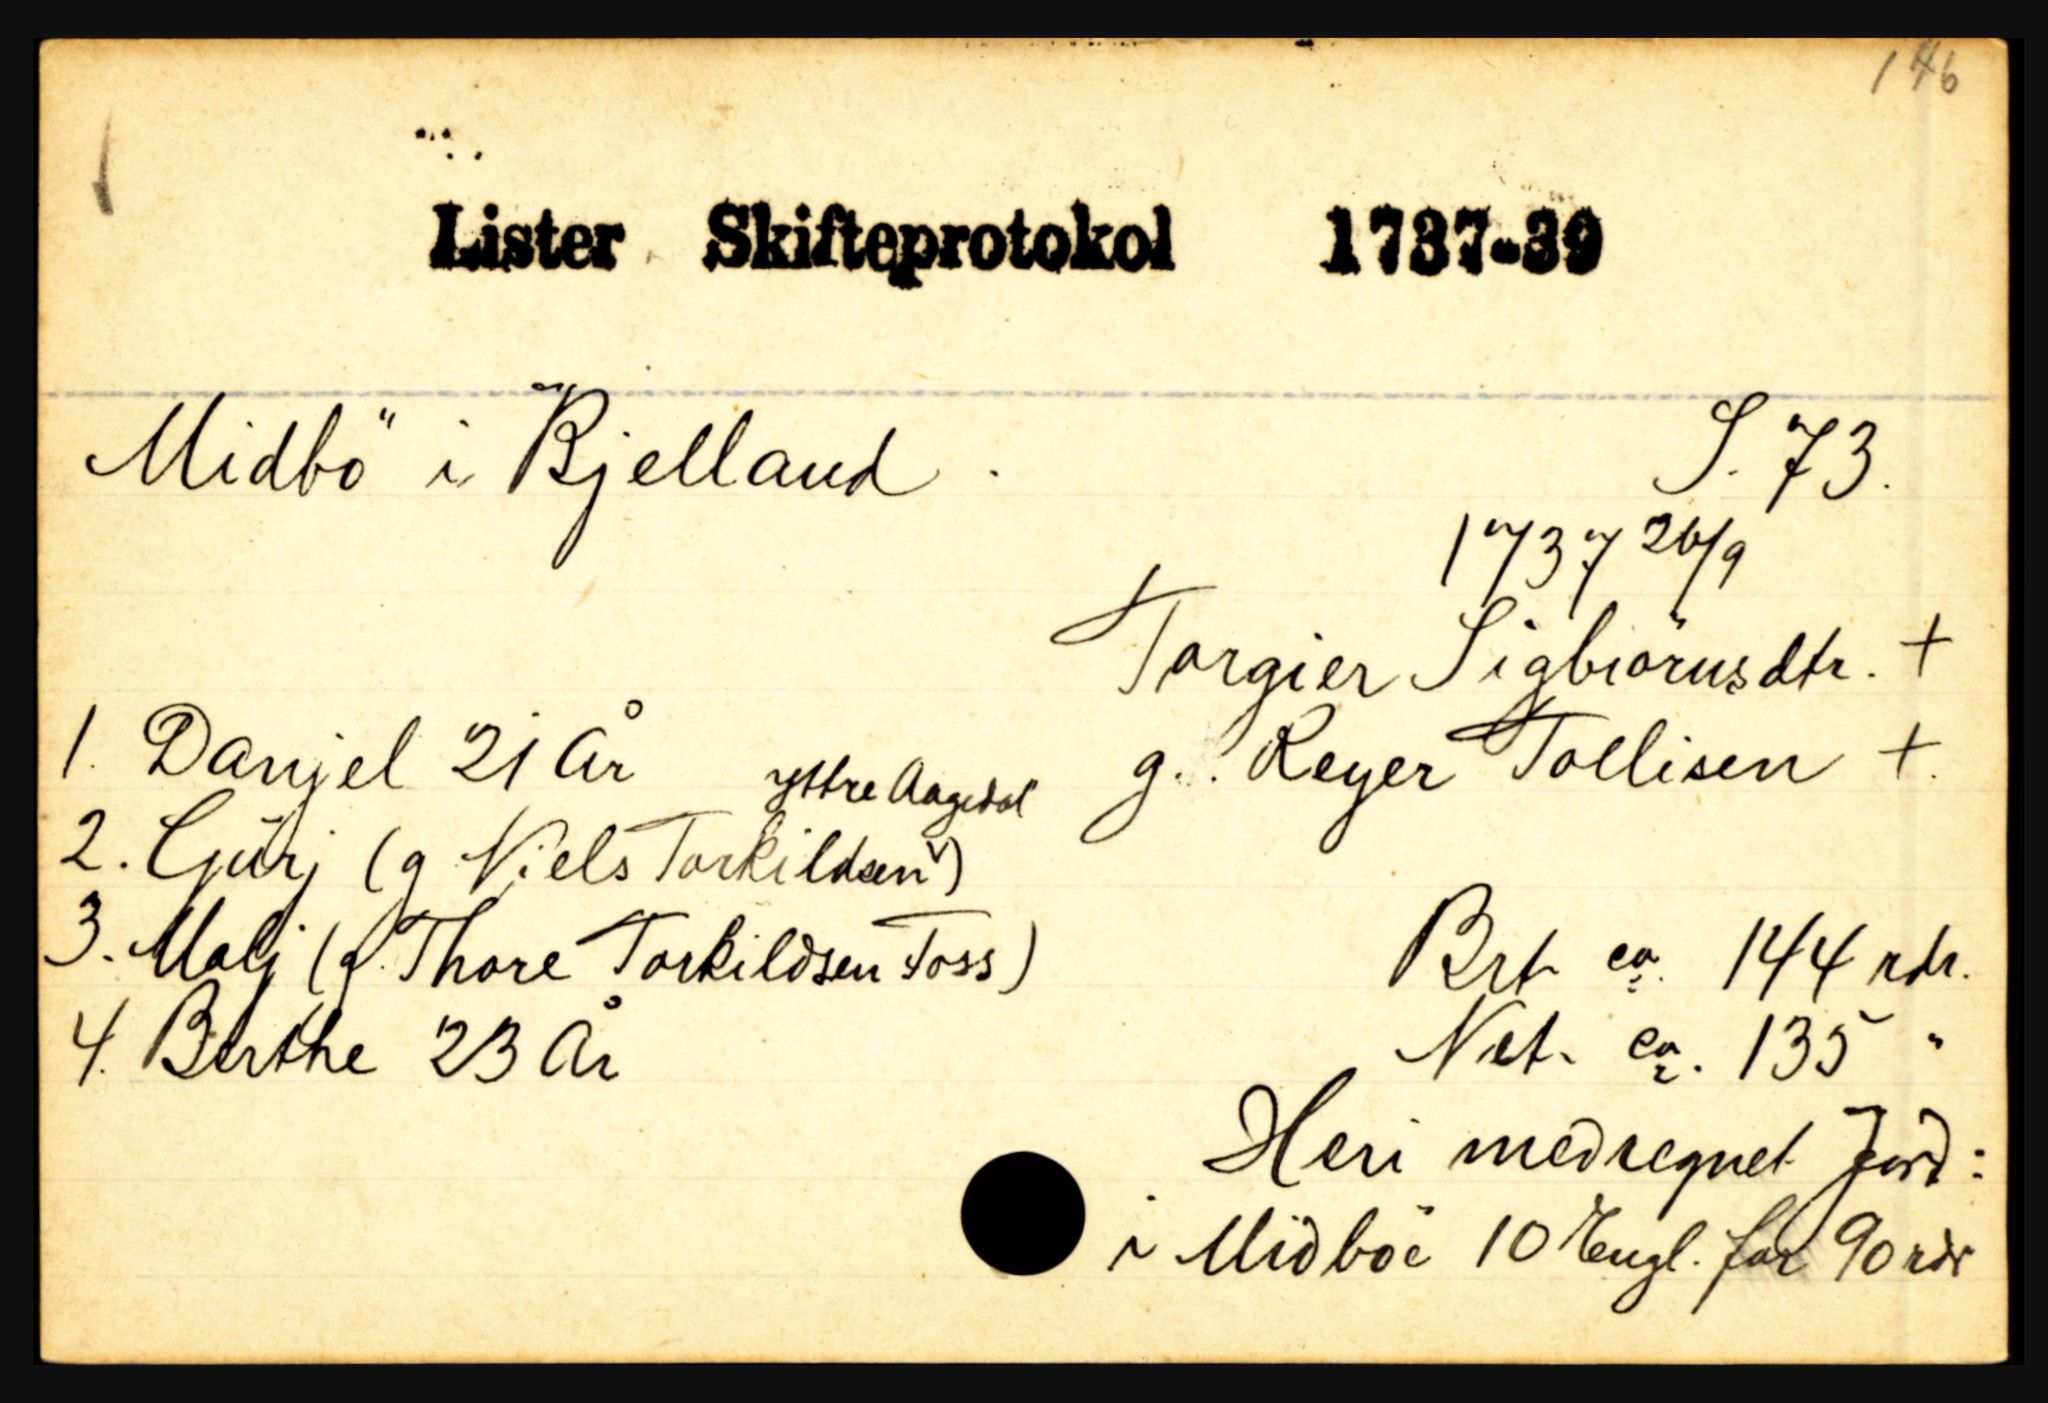 146
Lister Skifteprotokol 1737-39
Midbö i Bjelland. S. 73.
1737 26/9
Torgier Sigbiörnsdtr. +
g. Reyer Tollisen +.
1. Danjel 21 År
2. Gürj (g Niels Torkildsen ytre Aagedal)
3. Malj (g. Thore Torkildsen Foss)
4. Berthe 23 År
Brt ca. 144 rdr.
Net. ca. 135 "
Heri medregnet Jord:
i Midböe 10 Engl. for 90 rdr